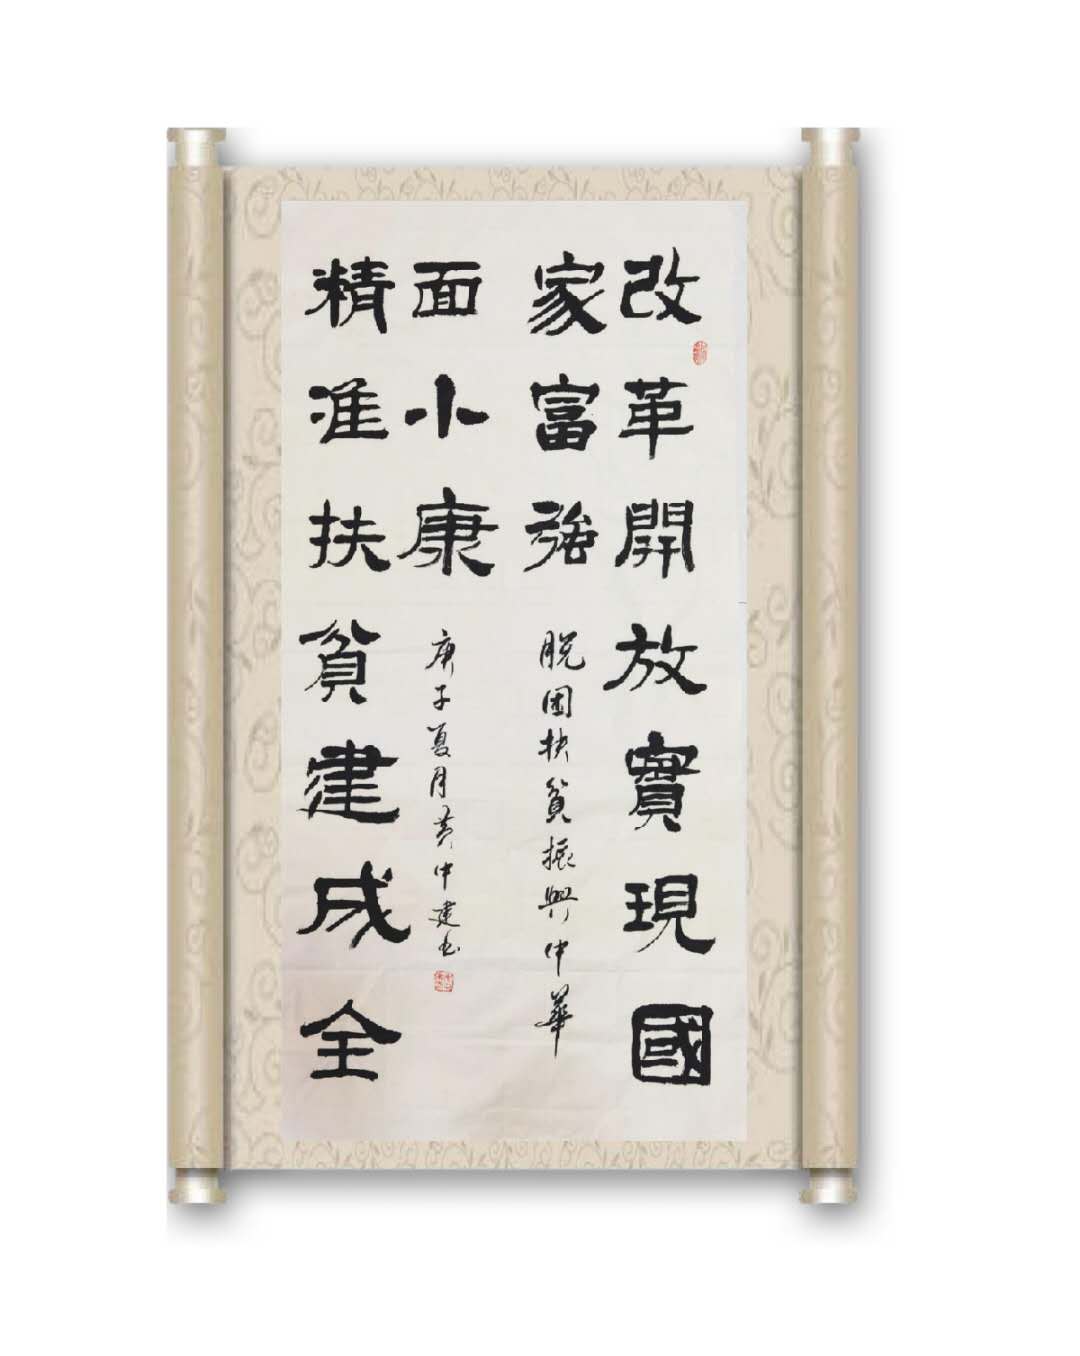 改革開放實現國
家富強
脱困扶貧振興中華
精准扶貧建成全
面小康
庚子夏月黄中建书